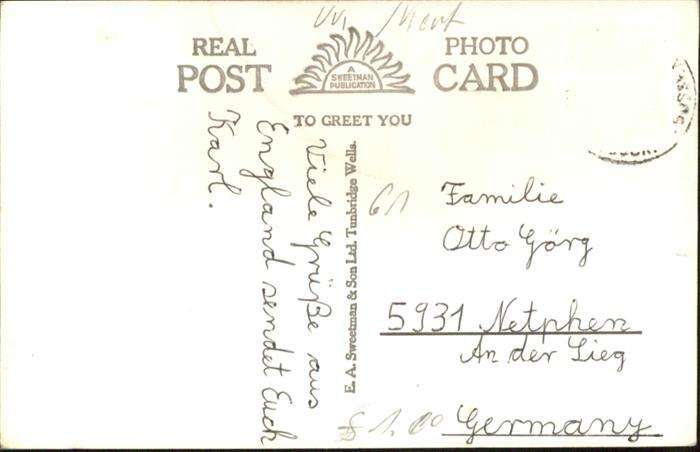 REAL PHOTO
POST CARD
A
SWEETMAN
PUBLICATION
TO GREET YOU
Viele Grüße aus
England sendet Euch
Karl.
E. A. Sweetman & Son Ltd. Tunbridge Wells.
61
Familie
Otto Görg
5931 Netphen
An der Sieg
Germany
£ 1.00